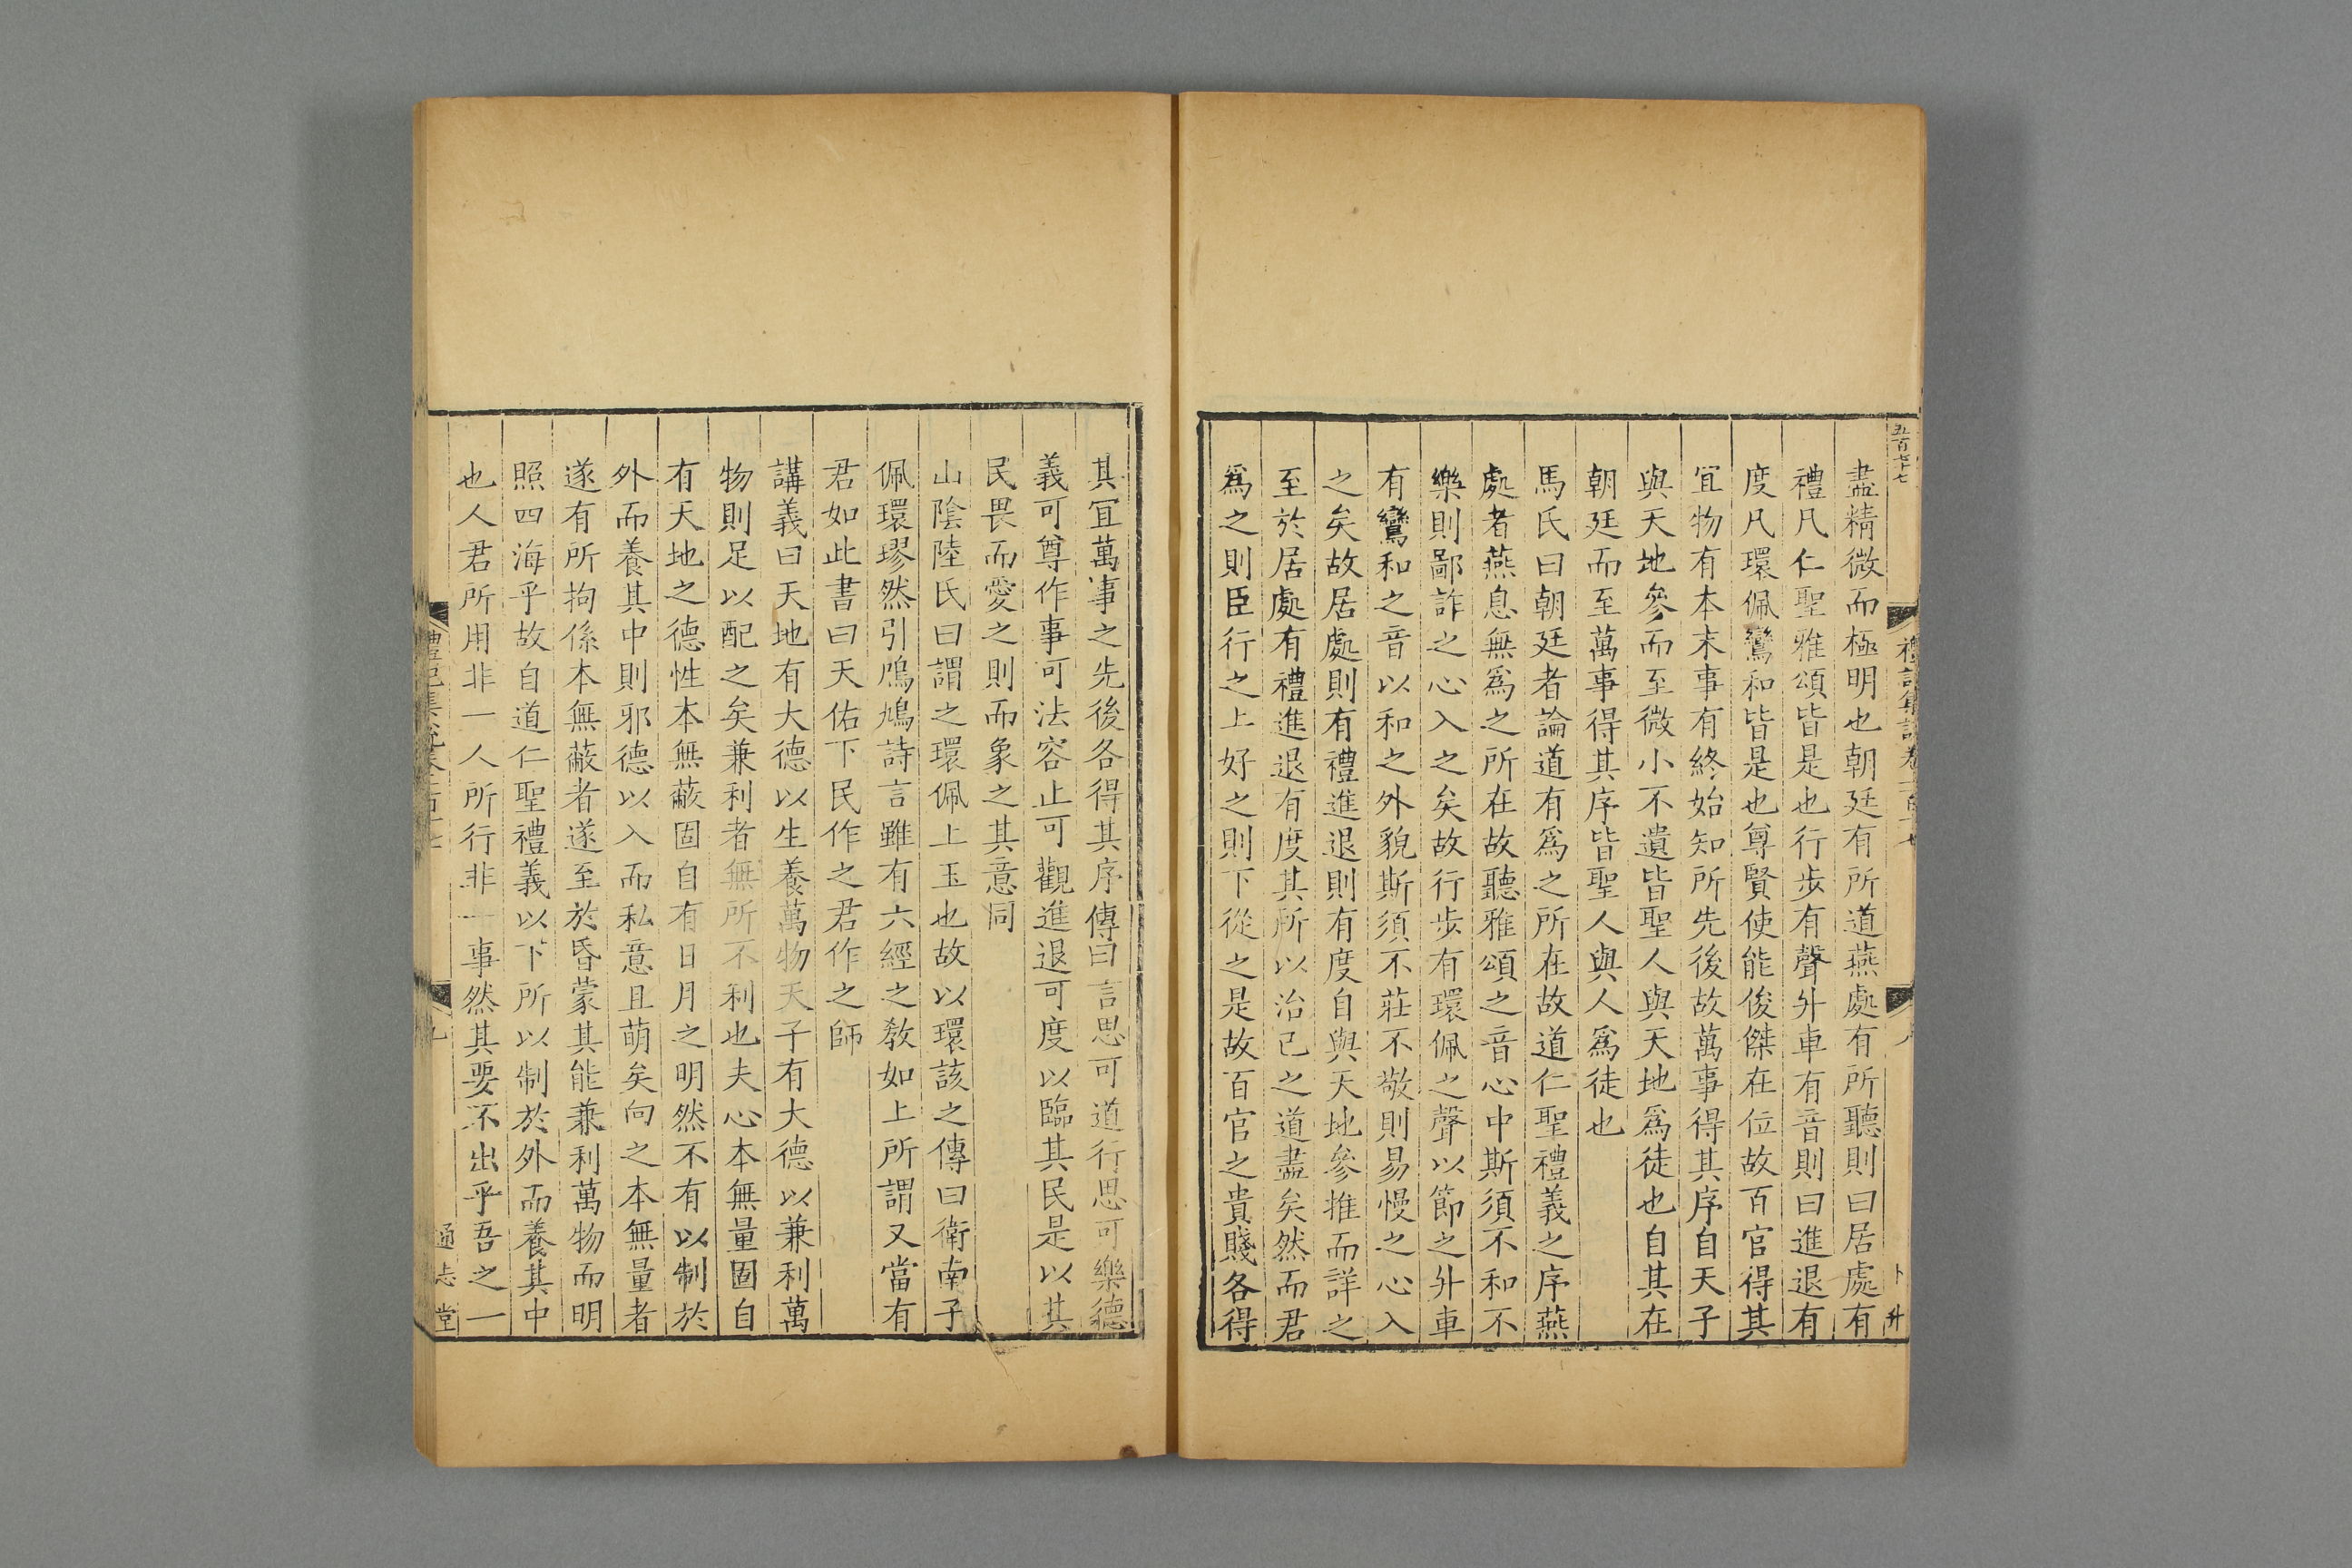 五百七十七
盡精微而極明也朝廷有所道燕處有所聽則曰居處有
禮凡仁聖雅頌皆是也行步有聲升車有音則曰進退有
度凡環佩鸞和皆是也尊賢使能俊傑在位故百官得其
宜物有本末事有終始知所先後故萬事得其序自天子
與天地參而至微小不遺皆聖人與天地爲徒也自其在
朝廷而至萬事得其序皆聖人與人爲徒也
馬氏曰朝廷者論道有爲之所在故道仁聖禮義之序燕
處者燕息無爲之所在故聽雅頌之音心中斯須不和不
樂則鄙詐之心入之矣故行步有環佩之聲以節之升車
有鸞和之音以和之外貌斯須不莊不敬則易慢之心入
之矣故居處則有禮進退則有度自與天地參推而詳之
至於居處有禮進退有度其所以治己之道盡矣然而君
爲之則臣行之上好之則下從之是故百官之貴賤各得
其宜萬事之先後各得其序傳曰言思可道行思可樂德
義可尊作事可法容止可觀進退可度以臨其民是以其
民畏而愛之則而象之其意同
山陰陸氏曰謂之環佩上玉也故以環該之傳曰衛南子
佩環璆然引鳲鳩詩言雖有六經之教如上所謂又當有
君如此書曰天佑下民作之君作之師
講義曰天地有大德以生養萬物天子有大德以兼利萬
物則足以配之矣兼利者無所不利也夫心本無量固自
有天地之德性本無蔽固自有日月之明然不有以制於
外而養其中則邪德以入而私意且萌矣向之本無量者
遂有所拘係本無蔽者遂至於昏蒙其能兼利萬物而明
照四海乎故自道仁聖禮義以下所以制於外而養其中
也人君所用非一人所行非一事然其要不出乎吾之一
通志堂